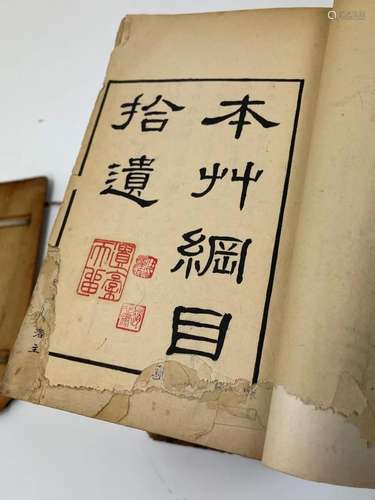 本艸綱目
拾遺